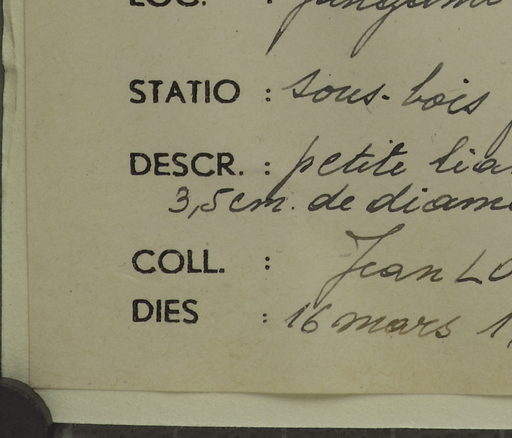 LOC. :
STATIO : sous-bois
DESCR. : petite lia
3,5 cm. de diam
COLL. : Jean LO
DIES : 16 mars 1